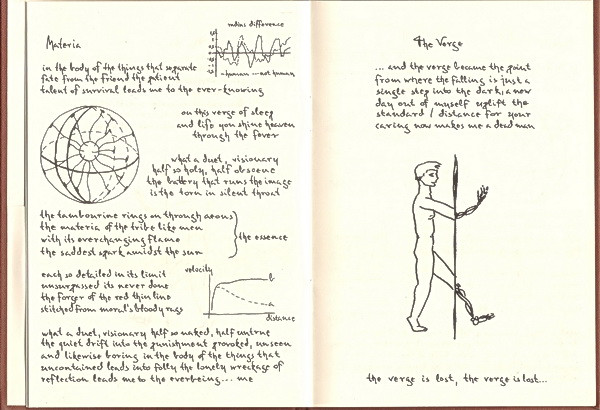 Materia
radius difference
-human ...not human
in the body of the things that separate
fate from the friend the patient
talent of survival leads me to the ever-knowing
on this verge of sleep
and life you shine heaven
through the fever
what a duet, visionary
half so holy, half obscene
the battery that runs the image
is the torn in silent throat
the tambourine rings on through aeons
the materia of the tribe like men
with its everchanging flame
the saddest spark amidst the sun
the essence
each so detailed in its limit
unsurpassed its never done
the forger of the red thin line
stitched from moral's bloody rags
velocity
b
a
distance
what a duet, visionary half so naked, half untrue
the quiet drift into the punishment provoked, unseen
and likewise boring in the body of the things that
uncontained leads into folly the lonely wreckage of
reflection leads me to the everbeing... me
The Verge
... and the verge became the point
from where the falling is just a
single step into the dark, a new
day out of myself uplift the
standard / distance for your
caring now makes me a dead man
the verge is lost, the verge is lost...